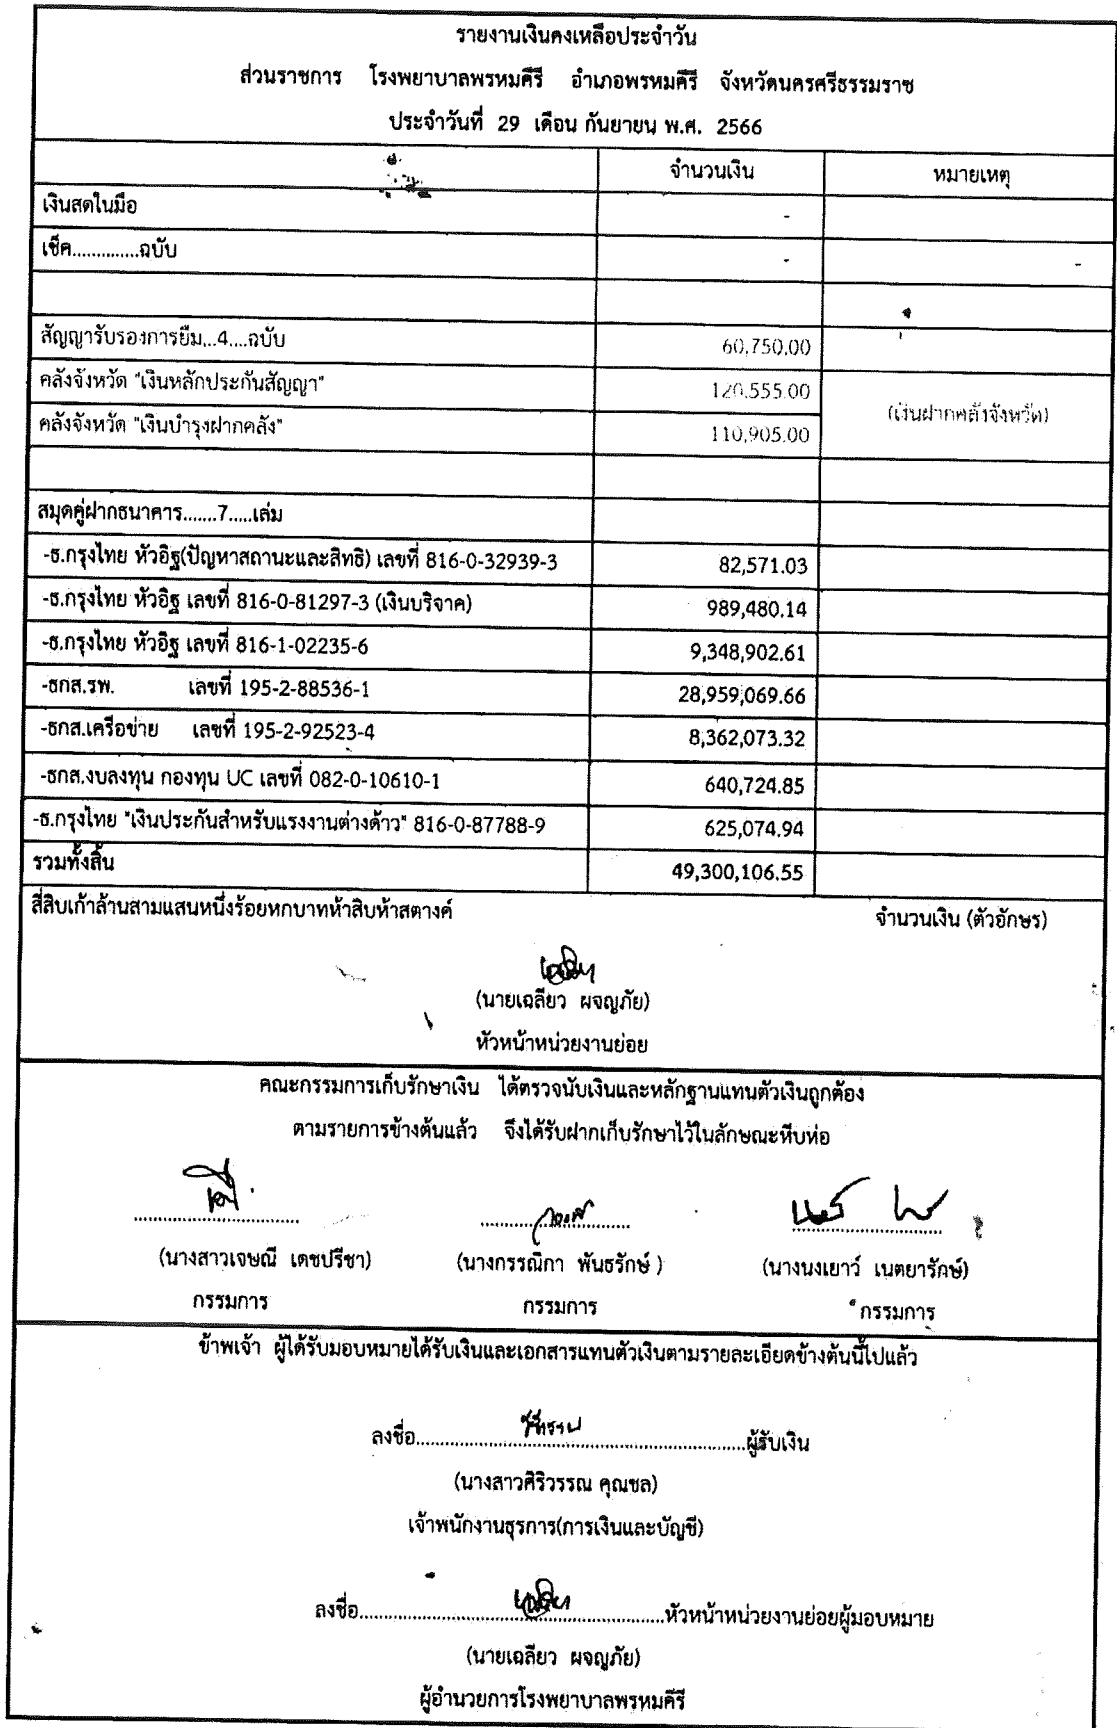 รายงานเงินคงเหลือประจำวัน
ส่วนราชการ โรงพยาบาลพรหมคีรี อำเภอพรหมคีรี จังหวัดนครศรีธรรมราช
ประจำวันที่ 29 เดือน กันยายน พ.ศ. 2566
จำนวนเงิน หมายเหตุ
เงินสดในมือ -
เช็ค..............ฉบับ - -
สัญญารับรองการยืม...4....ฉบับ 60,750.00
คลังจังหวัด "เงินหลักประกันสัญญา" 120,555.00 (เงินฝากคลังจังหวัด)
คลังจังหวัด "เงินบำรุงฝากคลัง" 110,905.00
สมุดคู่ฝากธนาคาร.......7.....เล่ม
-ธ.กรุงไทย หัวอิฐ(ปัญหาสถานะและสิทธิ) เลขที่ 816-0-32939-3 82,571.03
-ธ.กรุงไทย หัวอิฐ เลขที่ 816-0-81297-3 (เงินบริจาค) 989,480.14
-ธ.กรุงไทย หัวอิฐ เลขที่ 816-1-02235-6 9,348,902.61
-ธกส.รพ. เลขที่ 195-2-88536-1 28,959,069.66
-ธกส.เครือข่าย เลขที่ 195-2-92523-4 8,362,073.32
-ธกส.งบลงทุน กองทุน UC เลขที่ 082-0-10610-1 640,724.85
-ธ.กรุงไทย "เงินประกันสำหรับแรงงานต่างด้าว" 816-0-87788-9 625,074.94
รวมทั้งสิ้น 49,300,106.55
สี่สิบเก้าล้านสามแสนหนึ่งร้อยหกบาทห้าสิบห้าสตางค์ จำนวนเงิน (ตัวอักษร)
(นายเฉลียว ผจญภัย)
หัวหน้าหน่วยงานย่อย
คณะกรรมการเก็บรักษาเงิน ได้ตรวจนับเงินและหลักฐานแทนตัวเงินถูกต้อง
ตามรายการข้างต้นแล้ว จึงได้รับฝากเก็บรักษาไว้ในลักษณะหีบห่อ
(นางสาวเจษณี เดชปรีชา) (นางกรรณิกา พันธรักษ์ ) (นางนงเยาว์ เนตยารักษ์)
กรรมการ กรรมการ กรรมการ
ข้าพเจ้า ผู้ได้รับมอบหมายได้รับเงินและเอกสารแทนตัวเงินตามรายละเอียดข้างต้นนี้ไปแล้ว
ลงชื่อ......................ผู้รับเงิน
(นางสาวศิริวรรณ คุณชล)
เจ้าพนักงานธุรการ(การเงินและบัญชี)
ลงชื่อ......................หัวหน้าหน่วยงานย่อยผู้มอบหมาย
(นายเฉลียว ผจญภัย)
ผู้อำนวยการโรงพยาบาลพรหมคีรี